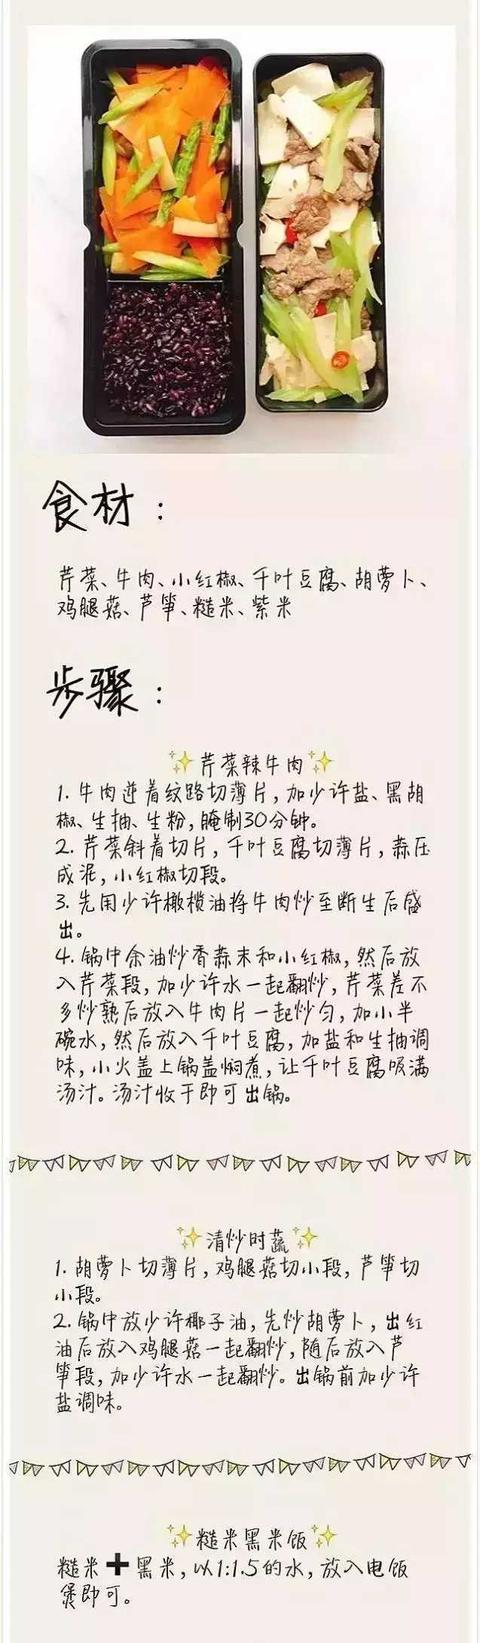 食材：
芹菜、牛肉、小红椒、千叶豆腐、胡萝卜、
鸡腿菇、芦笋、糙米、紫米
步骤：
✨芹菜辣牛肉✨
1. 牛肉逆着纹路切薄片，加少许盐、黑胡
椒、生抽、生粉，腌制30分钟。
2. 芹菜斜着切片，千叶豆腐切薄片，蒜压
成泥，小红椒切段。
3. 先用少许橄榄油将牛肉炒至断生后盛
出。
4. 锅中余油炒香蒜末和小红椒，然后放
入芹菜段，加少许水一起翻炒，芹菜差不
多炒熟后放入牛肉片一起炒匀，加小半
碗水，然后放入千叶豆腐，加盐和生抽调
味，小火盖上锅盖焖煮，让千叶豆腐吸满
汤汁。汤汁收干即可出锅。
✨清炒时蔬✨
1. 胡萝卜切薄片，鸡腿菇切小段，芦笋切
小段。
2. 锅中放少许椰子油，先炒胡萝卜，出红
油后放入鸡腿菇一起翻炒，随后放入芦
笋段，加少许水一起翻炒。出锅前加少许
盐调味。
✨糙米黑米饭✨
糙米➕黑米，以1:1.5的水，放入电饭
煲即可。